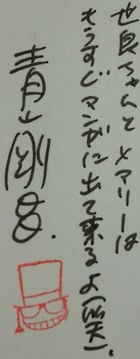 世良ちゃんとメアリーは
もうすぐマンガに出て来るよ(笑).
青山剛昌.